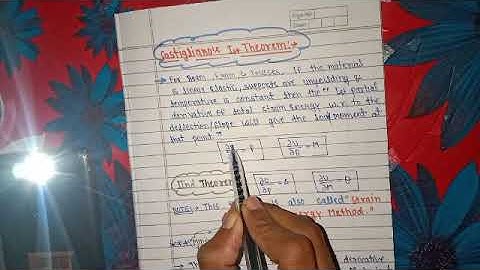 Castigliano's Ist Theorem:→
→ For Beam, Frame & Trusses. If the material
is linear elastic, supports are unyielding &
temperature is constant then the 1st partial
derivative of total strain energy w.r. to the
deflection/slope will give the load/moment at
that point."
= P ∂U/∂θ = M
IInd Theorem ∂U/∂P = Δ ∂U/∂M = θ
NOTE:→ This is also called "Strain
Energy Method."
derivative